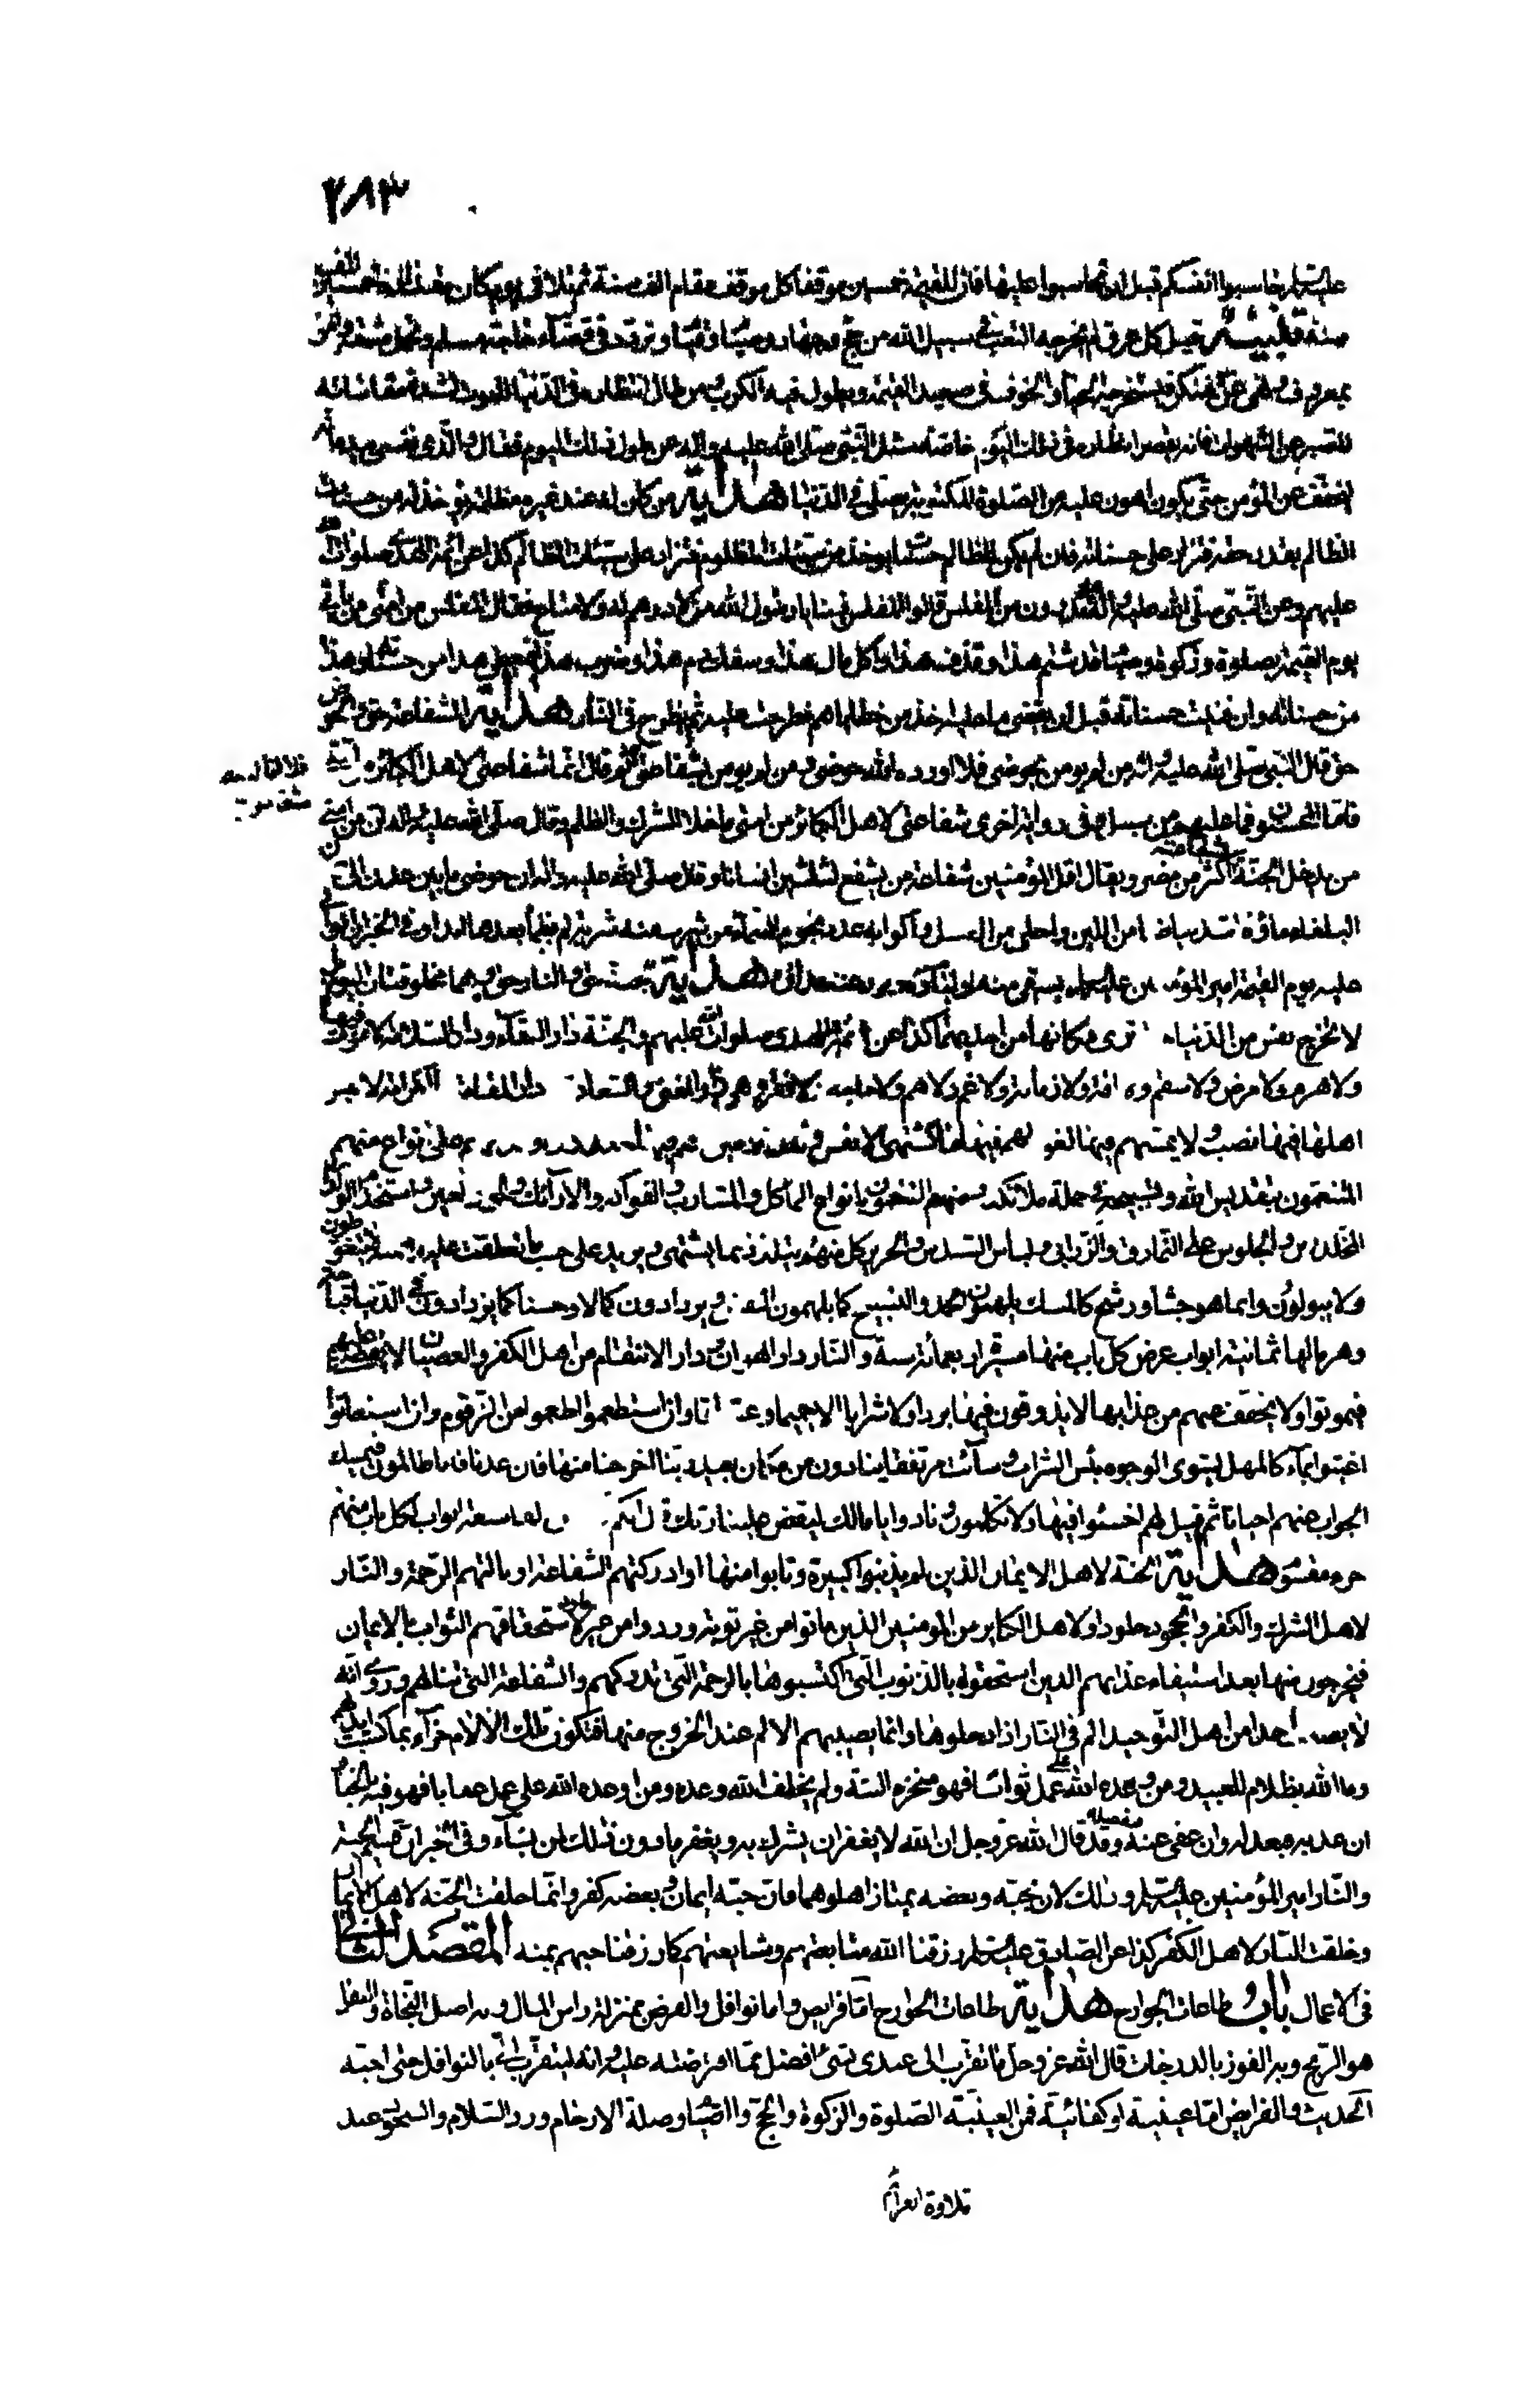 ٢٨٣
فحاسبوا انفسكم قبل ان تحاسبوا عليها فان للقيمة خمسين موقفا كل موقف مقام الف سنة ثم تلا في يوم كان مقداره خمسين الف
سنة قيل كل عرق لم يخرجه التعب في سبيل الله من حج وجهاد وصيام وقيام وتردد في قضاء حاجة مسلم وتحمل مشقة في امر
بمعروف ونهى عن منكر فيستخرجه الحياء والخوف في صعيد القيمة ويطول فيه الكرب من طال انتظاره في الدنيا للموت لشدة مقاساته
للصبر عن الشهوات فانه يقصر انتظاره في ذلك اليوم خاصة سئل النبي صلى الله عليه واله عن طول ذلك اليوم فقال والذي نفسي بيده انه
ليخفف عن المؤمن حتى يكون اهون عليه من الصلوة المكتوبة يصلى في الدنيا هداية من كان له عند غيره مظلمة يؤخذ له من حسنات
الظالم بقدر حقه فتزاد على حسناته فان لم يكن للظالم حسنات يؤخذ من سيئات المظلوم فتزاد على سيئات الظالم كذا عن ائمة الهدى صلوات الله
عليهم وعن النبي صلى الله عليه واله اتدرون من المفلس قالوا المفلس فينا يا رسول الله من لا درهم له ولا متاع فقال المفلس من امتى من ياتى
يوم القيمة بصلوة وزكوة وصيام قد شتم هذا وقذف هذا واكل مال هذا وسفك دم هذا وضرب هذا فيعطى هذا من حسناته وهذا
من حسناته وان فنيت حسناته قبل ان يقضى ما عليه اخذ من خطاياهم فطرحت عليه ثم يطرح في النار هداية الشفاعة حق والحوض
حق قال النبي صلى الله عليه واله من لم يؤمن بحوضى فلا اورده الله حوضى ومن لم يؤمن بشفاعتى ثم قال انما شفاعتى لاهل الكبائر من امتى
فاما المحسنون فما عليهم من سبيل وفي رواية اخرى شفاعتى لاهل الكبائر من امتى ما خلا الشرك والظلم وقال صلى الله عليه واله ان من امتى
من يدخل الجنة بشفاعته اكثر من مضر ويقال اقل المؤمنين شفاعة من يشفع لثلثين انسانا وقال صلى الله عليه واله ان حوضى ما بين عدن الى
عليه يوم القيمة امير المؤمنين عليه السلام يسقى منه اوليائه هداية الجنة حق والنار حق وهما مخلوقتان اليوم
لا تخرج نفس من الدنيا ترى مكانها من احديهما كذا عن ائمة الهدى صلوات الله عليهم والجنة دار البقاء ودار السلامة لا موت فيها
ولا هرم ولا مرض ولا سقم ولا افة ولا زمانة ولا غم ولا هم ولا حاجة ولا فقر وهي دار الغنى والسعادة دار المقامة
المتنعمون بتقديس الله وتسبيحه في جملة ملائكته ومنهم المتنعمون بانواع الماكل والمشارب والفواكه والارائك
المخلدين والجلوس على النمارق والزرابى ولباس السندس والحرير كل منهم يتلذذ بما يشتهى ويريد على حسب ما تعلقت عليه
ولا يبولون وانما هو جشاء ورشح كالمسك يلهمون الحمد والتسبيح كما يلهمون النفس ويزدادون كمالا وحسنا كما يزدادون في الدنيا قباحة
وهرما لها ثمانية ابواب عرض كل باب منها مسيرة اربعمائة سنة والنار دار الهوان ودار الانتقام من اهل الكفر والعصيان لا يقضى عليهم
فيموتوا ولا يخفف عنهم من عذابها لا يذوقون فيها بردا ولا شرابا الا حميما وغساقا وان استطعموا اطعموا من الزقوم وان استغاثوا
اغيثوا بماء كالمهل يشوى الوجوه بئس الشراب وساءت مرتفقا ينادون من مكان بعيد ربنا اخرجنا منها فان عدنا فانا ظالمون فيمسك
الجواب عنهم احيانا ثم قيل لهم اخسئوا فيها ولا تكلمون ونادوا يا مالك ليقض علينا ربك قال انكم ولها سبعة ابواب لكل باب منهم
جزء مقسوم هداية الجنة لاهل الايمان الذين لم يذنبوا كبيرة وتابوا منها او ادركتهم الشفاعة او نالتهم الرحمة والنار
لاهل الشرك والكفر والجحود خلودا ولاهل الكبائر من المؤمنين الذين ماتوا من غير توبة ورودا من غير خلود لاستحقاقهم الثواب بالايمان
فيخرجون منها بعد استيفاء عذابهم الذين استحقوه بالذنوب التي اكتسبوها بالرحمة التي تدركهم والشفاعة التي تنالهم وروى انه
لا يصيب احدا من اهل التوحيد الم في النار اذا دخلوها وانما يصيبهم الالم عند الخروج منها فتكون تلك الالام جزاء بما كسبت ايديهم
وما الله بظلام للعبيد ومن وعده الله على عمل ثوابا فهو منجزه البتة ولم يخلف الله وعده ومن اوعده الله على عمل عقابا فهو فيه بالخيار
ان عذبه فبعدله وان عفى عنه فبفضله وقد قال الله عز وجل ان الله لا يغفر ان يشرك به ويغفر ما دون ذلك لمن يشاء وفي الخبر ان قسيم الجنة
والنار امير المؤمنين عليه السلام وذلك لان بحبه وبغضه يمتاز اهلوهما فان حبه ايمان وبغضه كفر وانما خلقت الجنة لاهل الايمان
وخلقت النار لاهل الكفر كذا عن الصادق عليه السلام رزقنا الله متابعتهم ومشايعتهم كما رزقنا حبهم بمنه المقصد الثانى
في الاعمال باب طاعات الجوارح هداية طاعات الجوارح اما فرايض واما نوافل والفرض بمنزلة راس المال وبه اصل النجاة والنفل
هو الربح وبه الفوز بالدرجات قال الله عز وجل ما تقرب الى عبدى بشئ افضل مما افترضته عليه وانه ليتقرب الى بالنوافل حتى احبه
الحديث والفرايض اما عينية او كفائية فمن العينية الصلوة والزكوة والحج والصيام وصلة الارحام ورد السلام والسجود عند
تلاوة العزائم